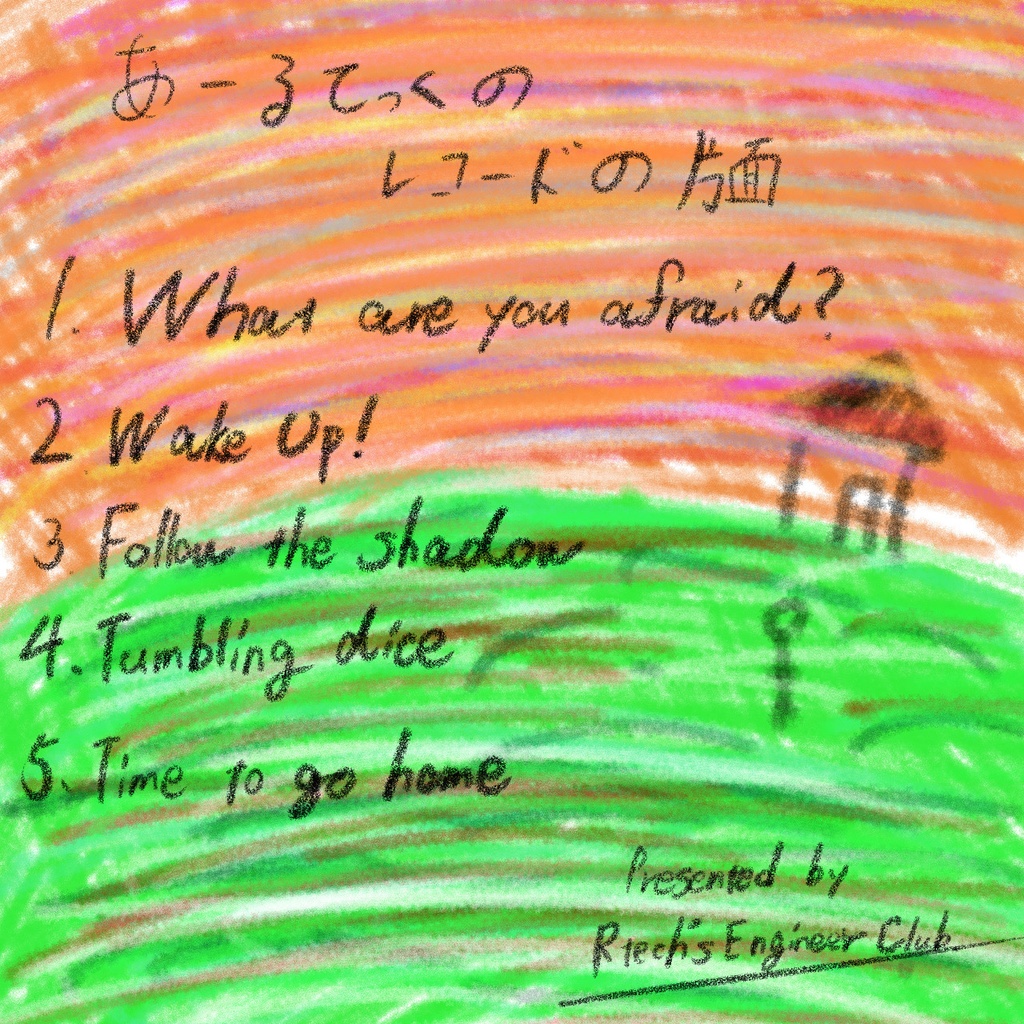 あーるてっくの
レコードの片面
1. What are you afraid?
2 Wake Up!
3 Follow the shadow
4. Tumbling dice
5. Time to go home
Presented by
Rtech's Engineer Club